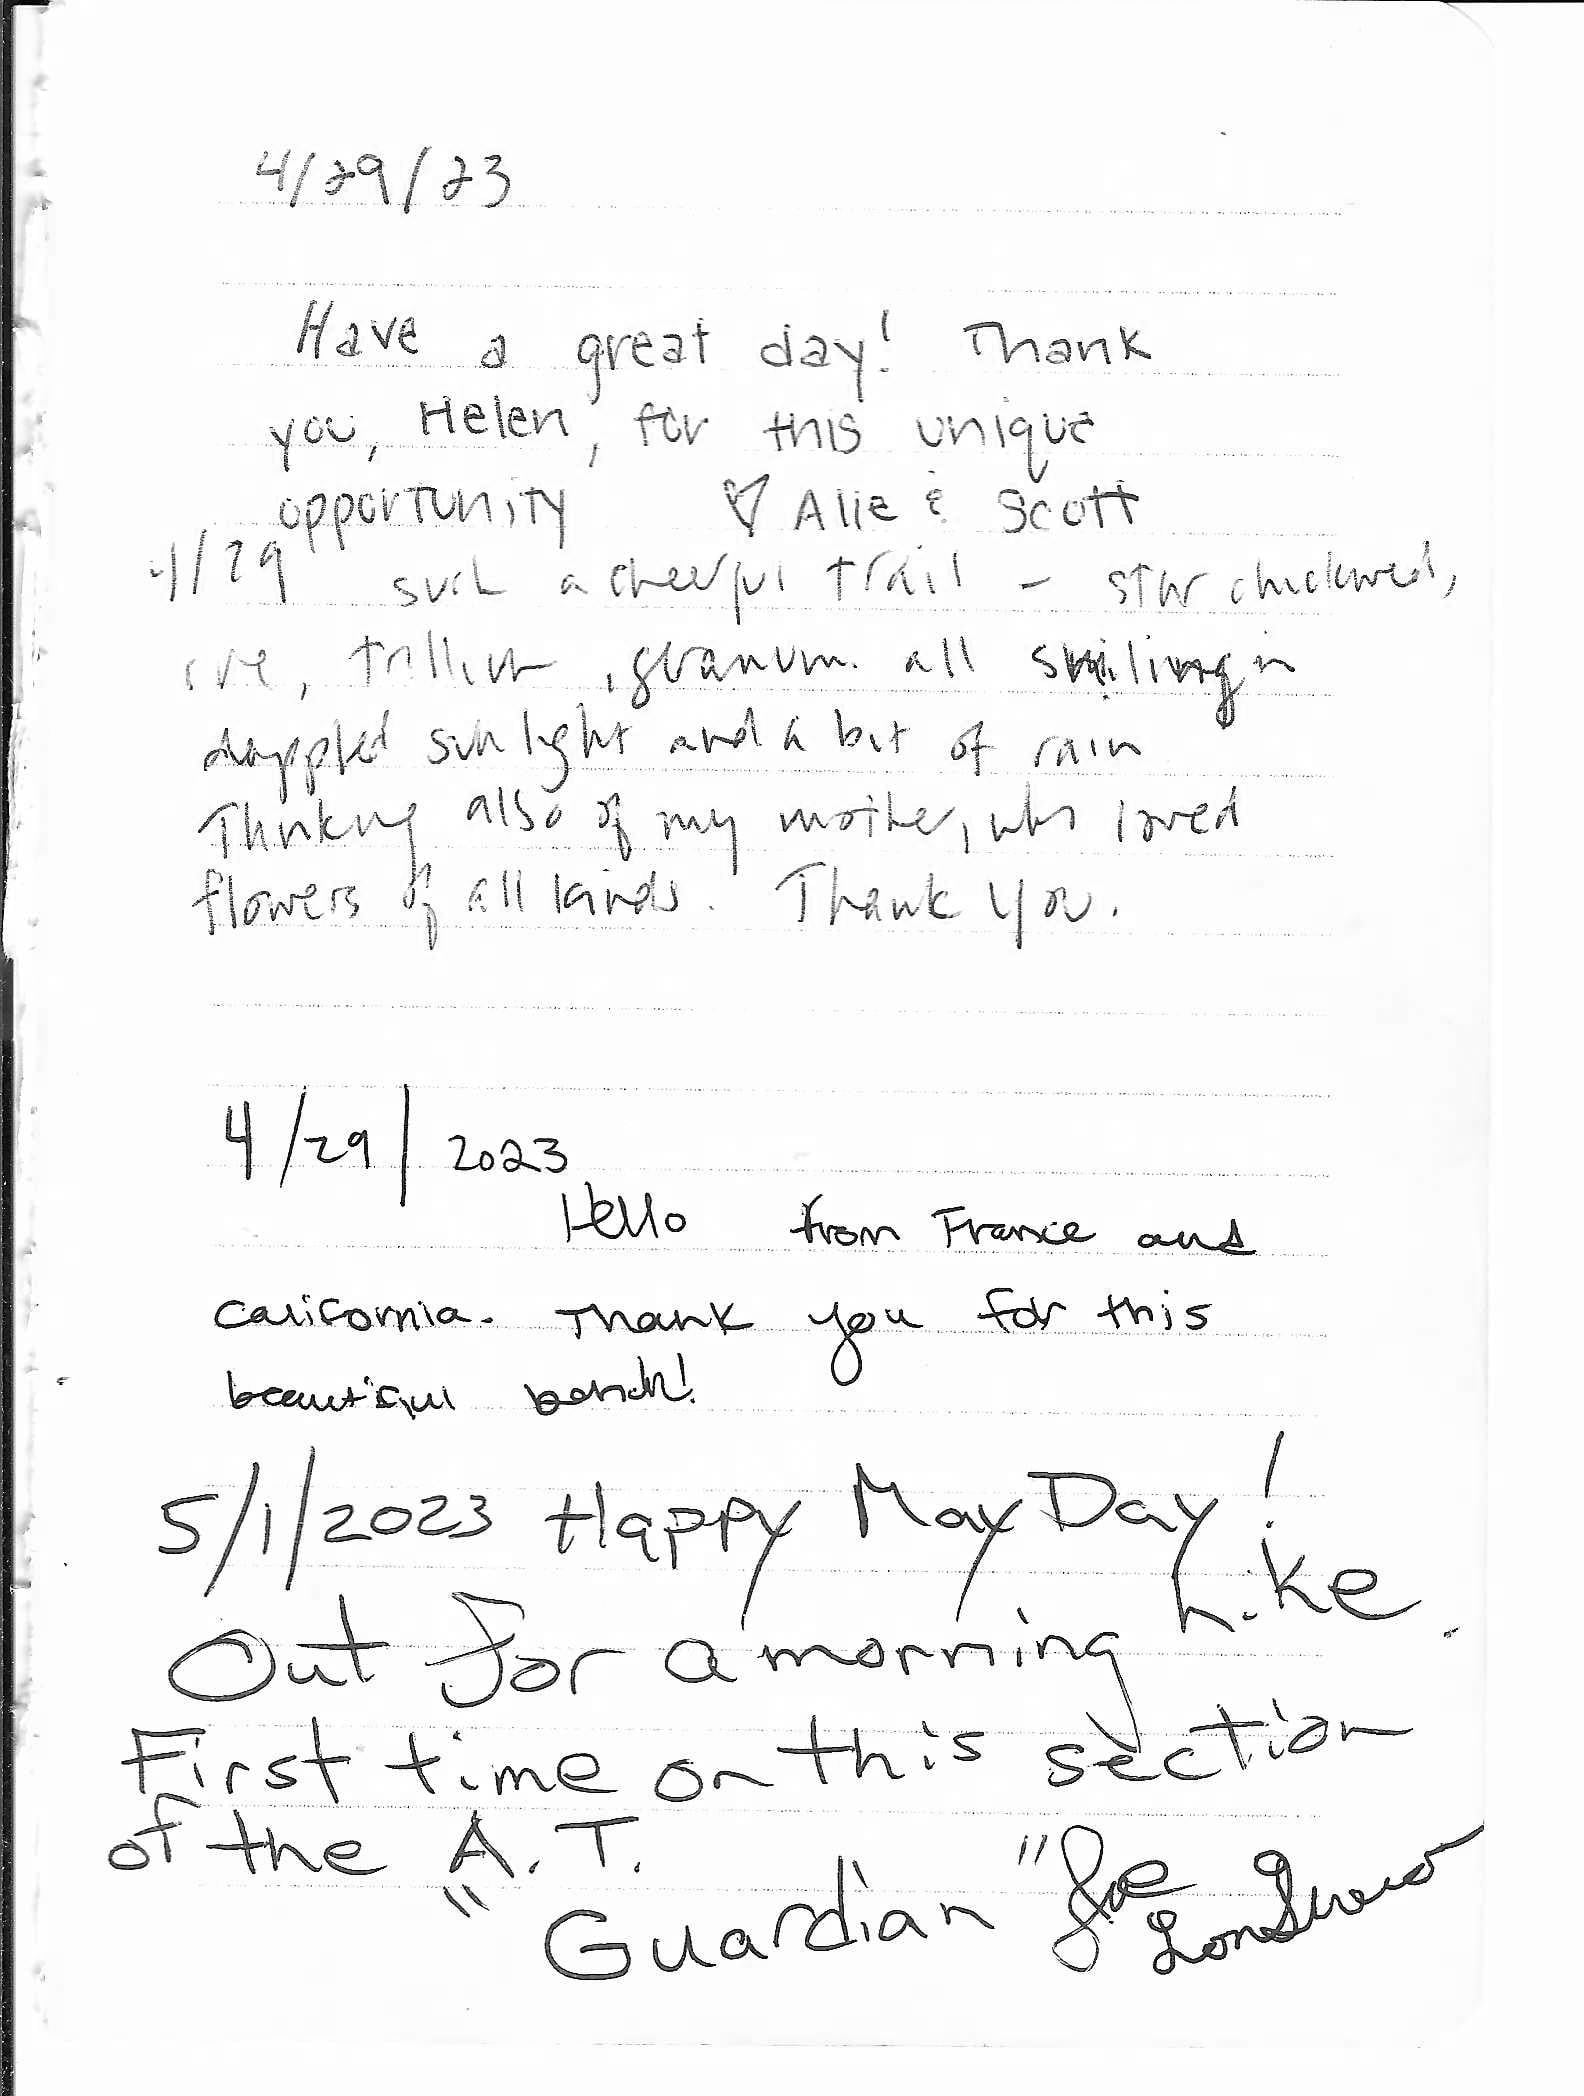 4/29/23
Have a great day! Thank
you, Helen, for this unique
opportunity ♡ Alie & Scott
4/29 such a cheerful trail – star chickweed,
trillium, geranium. all smiling in
dappled sunlight and a bit of rain
Thinking also of my mother, who loved
flowers of all kinds. Thank you.
4/29/2023
Hello from France and
California. Thank you for this
beautiful bench!
5/1/2023 Happy May Day!
Out for a morning hike.
First time on this section
of the A.T.
"Guardian" Joe